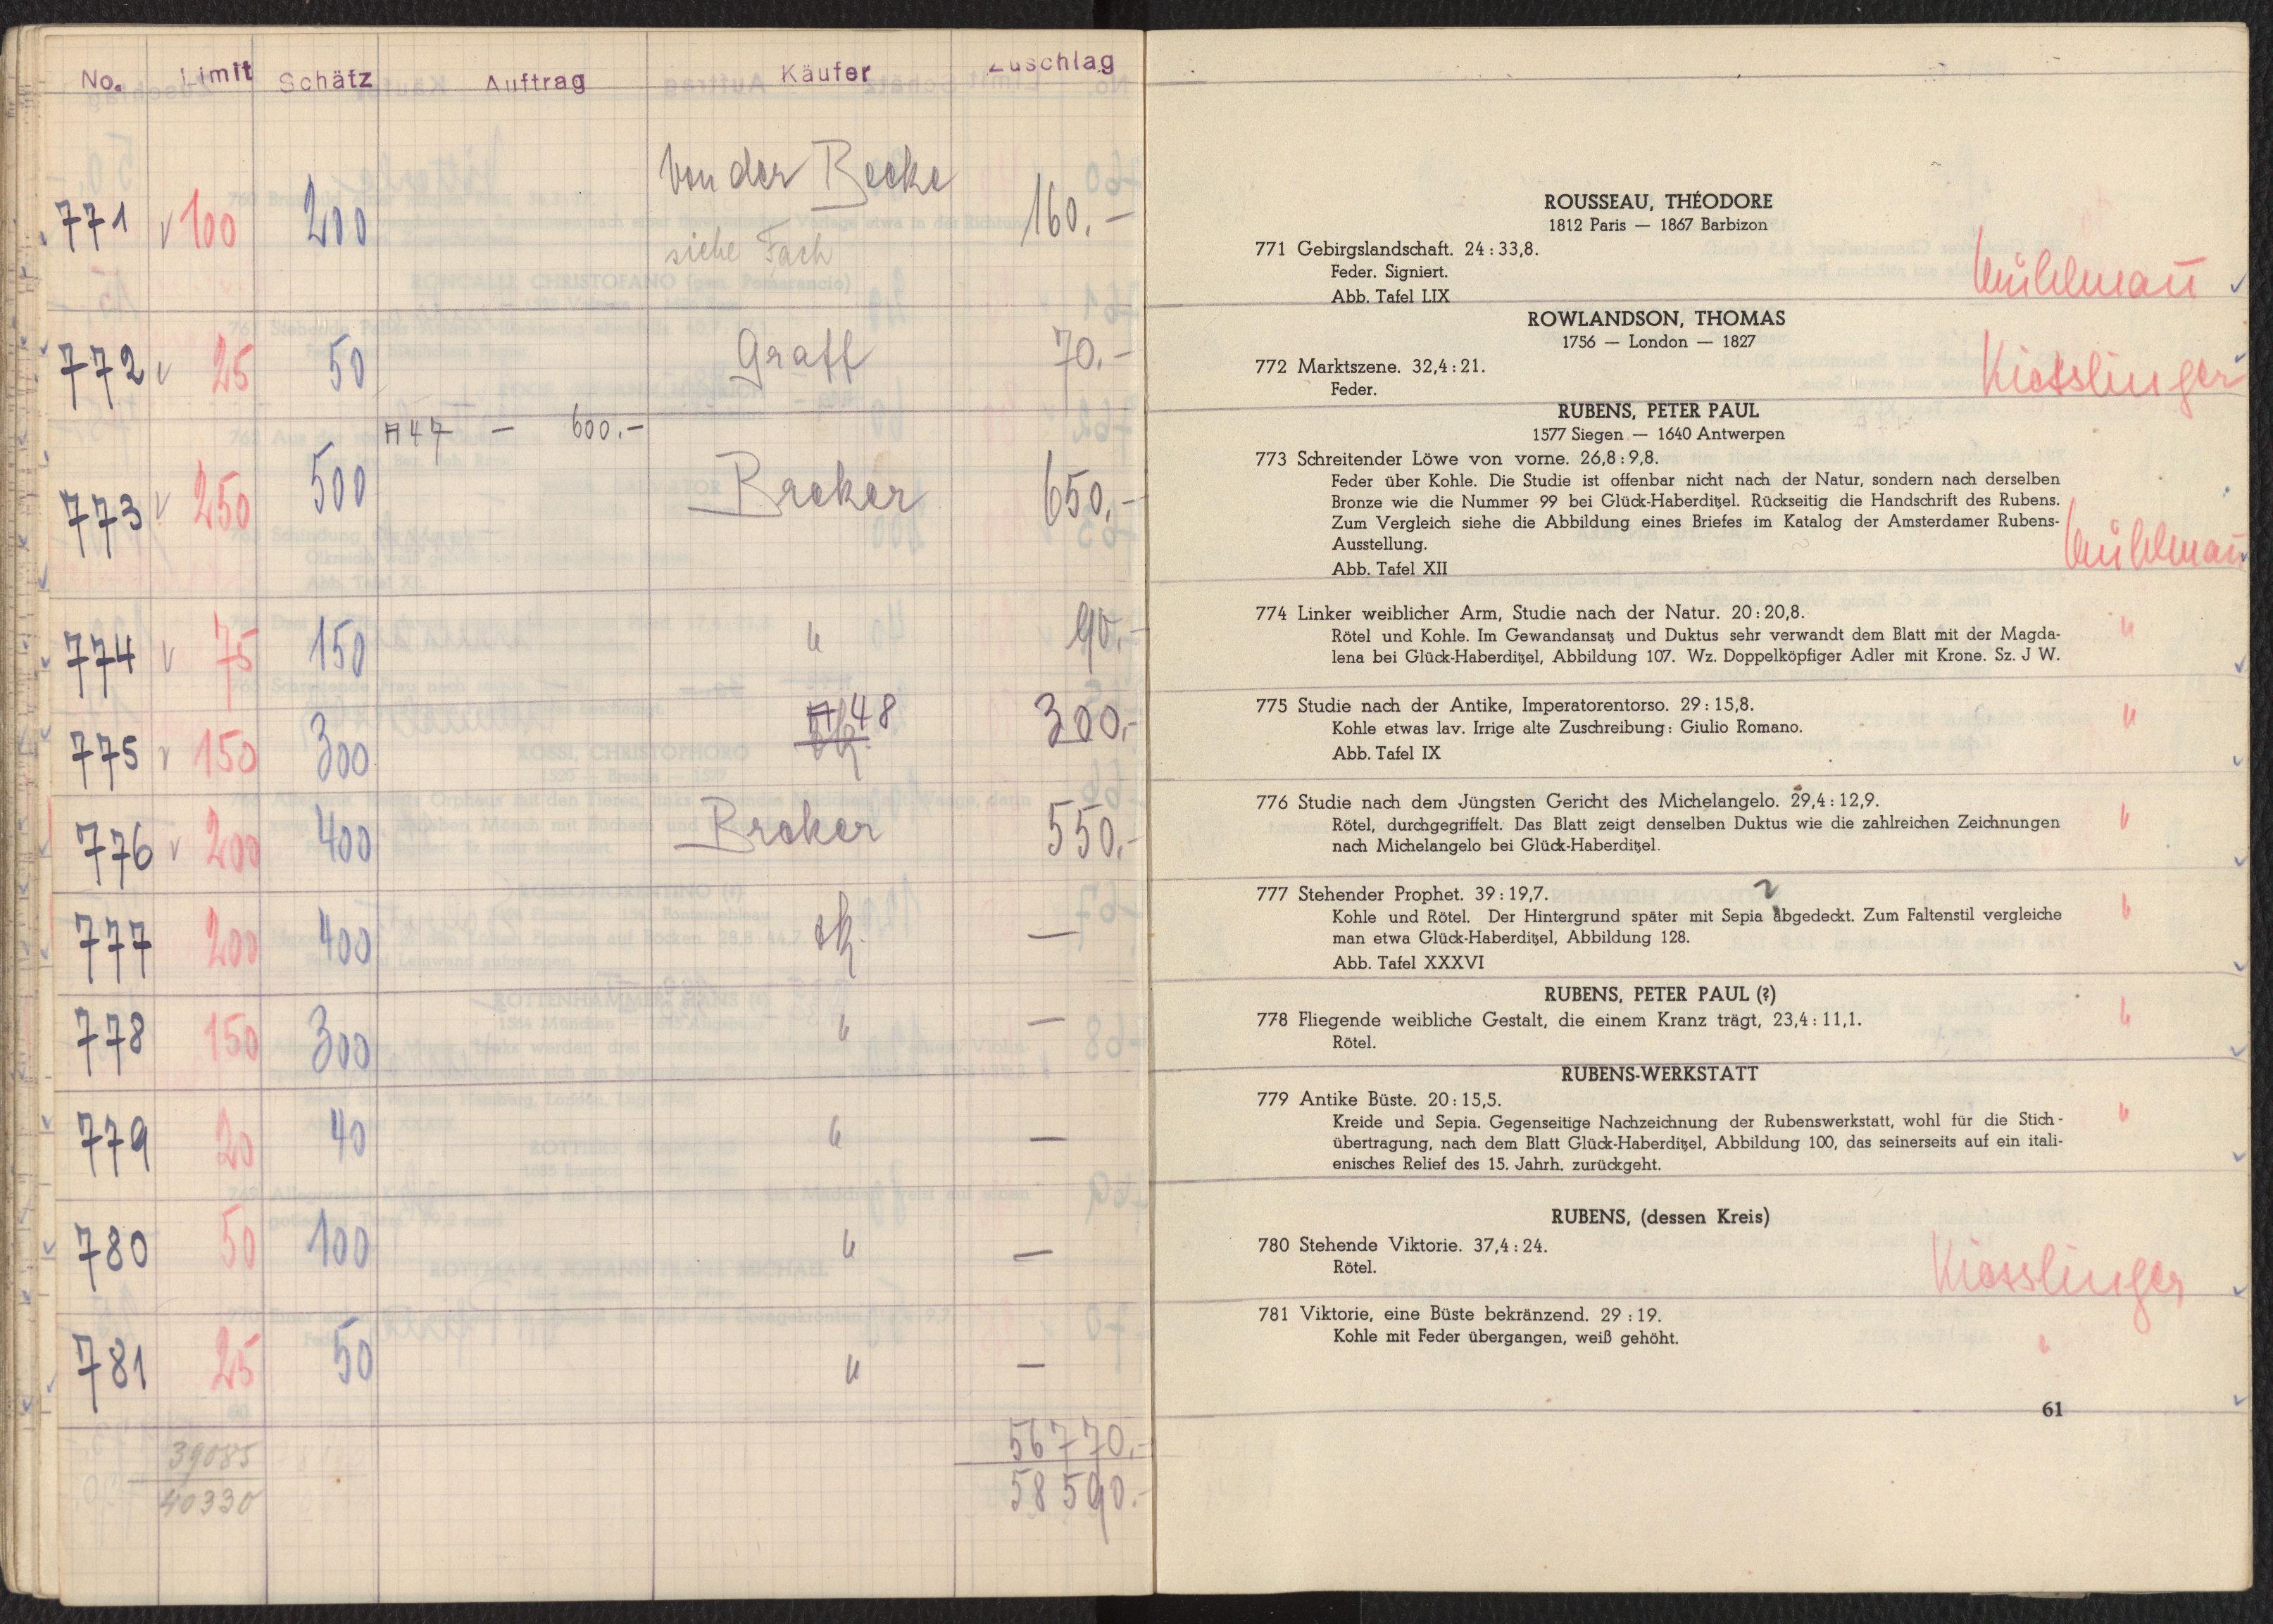 No. Limit Schätz Auftrag Käufer Zuschlag
von der Becke
771 √ 100 200 160.-
siehe Fach
772 √ 25 50 Graff 70.-
A 47 - 600.-
773 √ 250 500 Breker 650.-
774 √ 75 150 " 90.-
775 √ 150 300 A 48 300.-
776 √ 200 400 Breker 550.-
777 200 400 zk. —
778 150 300 " —
779 20 40 " —
780 50 100 " —
781 25 50 " —
39085 56770.-
40330 58590.-
ROUSSEAU, THÉODORE
1812 Paris — 1867 Barbizon
771 Gebirgslandschaft. 24 : 33,8.
Feder. Signiert.
Abb. Tafel LIX
ROWLANDSON, THOMAS
1756 — London — 1827
772 Marktszene. 32,4 : 21.
Feder.
Kiesslinger
RUBENS, PETER PAUL
1577 Siegen — 1640 Antwerpen
773 Schreitender Löwe von vorne. 26,8 : 9,8.
Feder über Kohle. Die Studie ist offenbar nicht nach der Natur, sondern nach derselben
Bronze wie die Nummer 99 bei Glück-Haberditzel. Rückseitig die Handschrift des Rubens.
Zum Vergleich siehe die Abbildung eines Briefes im Katalog der Amsterdamer Rubens-
Ausstellung.
Abb. Tafel XII
774 Linker weiblicher Arm, Studie nach der Natur. 20 : 20,8. "
Rötel und Kohle. Im Gewandansatz und Duktus sehr verwandt dem Blatt mit der Magda-
lena bei Glück-Haberditzel, Abbildung 107. Wz. Doppelköpfiger Adler mit Krone. Sz. J W.
775 Studie nach der Antike, Imperatorentorso. 29 : 15,8. "
Kohle etwas lav. Irrige alte Zuschreibung: Giulio Romano.
Abb. Tafel IX
776 Studie nach dem Jüngsten Gericht des Michelangelo. 29,4 : 12,9. "
Rötel, durchgegriffelt. Das Blatt zeigt denselben Duktus wie die zahlreichen Zeichnungen
nach Michelangelo bei Glück-Haberditzel.
777 Stehender Prophet. 39 : 19,7. "
Kohle und Rötel. Der Hintergrund später mit Sepia abgedeckt. Zum Faltenstil vergleiche
man etwa Glück-Haberditzel, Abbildung 128.
Abb. Tafel XXXVI
RUBENS, PETER PAUL (?)
778 Fliegende weibliche Gestalt, die einem Kranz trägt, 23,4 : 11,1. "
Rötel.
RUBENS-WERKSTATT
779 Antike Büste. 20 : 15,5. "
Kreide und Sepia. Gegenseitige Nachzeichnung der Rubenswerkstatt, wohl für die Stich-
übertragung, nach dem Blatt Glück-Haberditzel, Abbildung 100, das seinerseits auf ein itali-
enisches Relief des 15. Jahrh. zurückgeht.
RUBENS, (dessen Kreis)
780 Stehende Viktorie. 37,4 : 24.
Rötel.
Kiesslinger
781 Viktorie, eine Büste bekränzend. 29 : 19.
Kohle mit Feder übergangen, weiß gehöht. "
61